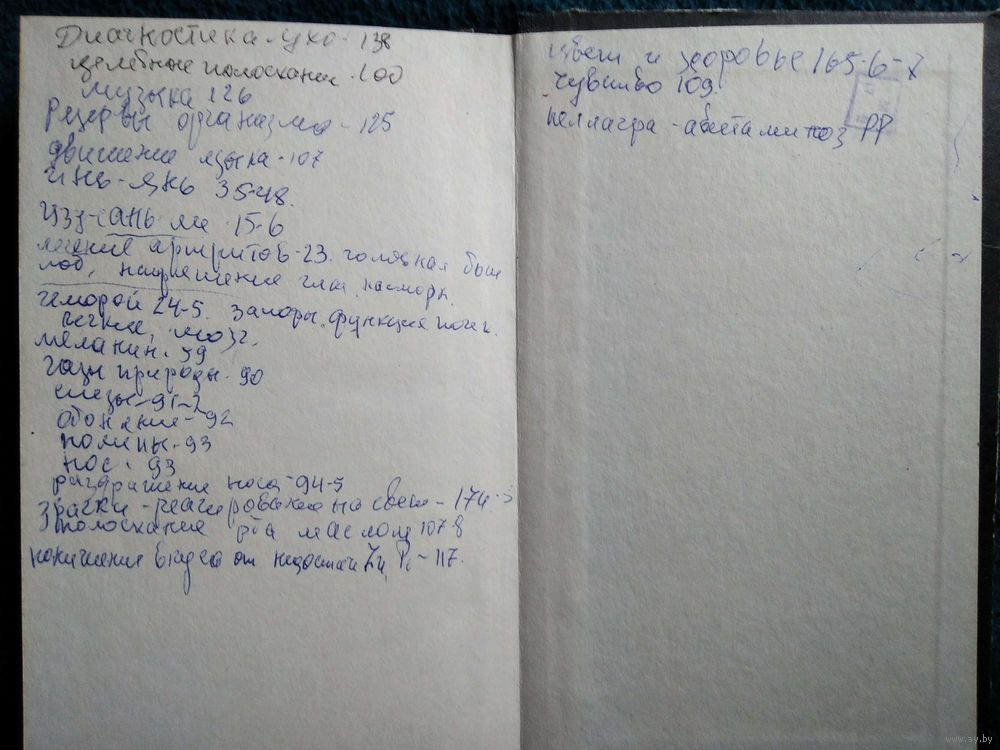 Диагностика-ухо-138
целебные полоскания-100
музыка 126
Резервы организма-125
движение языка-107
инь-янь 35-48.
цзу-сань-ли-15-6
лечение артритов-23. головная боль
лоб, напряжение глаз, насморк.
геморой 24-5. запоры, функция почек.
печени, мозг.
меланин-59
газы природы-90
слезы-91-2
обоняние-92
92
-93
нос-93
раздражение носа-94-5
зрачки-реагирование на свет-174-5
полоскание рта маслом 107-8
понижение вкуса от недостачи Zn, -117.
цвет и здоровье 165-6-7
чувство 109.
пеллагра-авитаминоз РР
www.ay.by